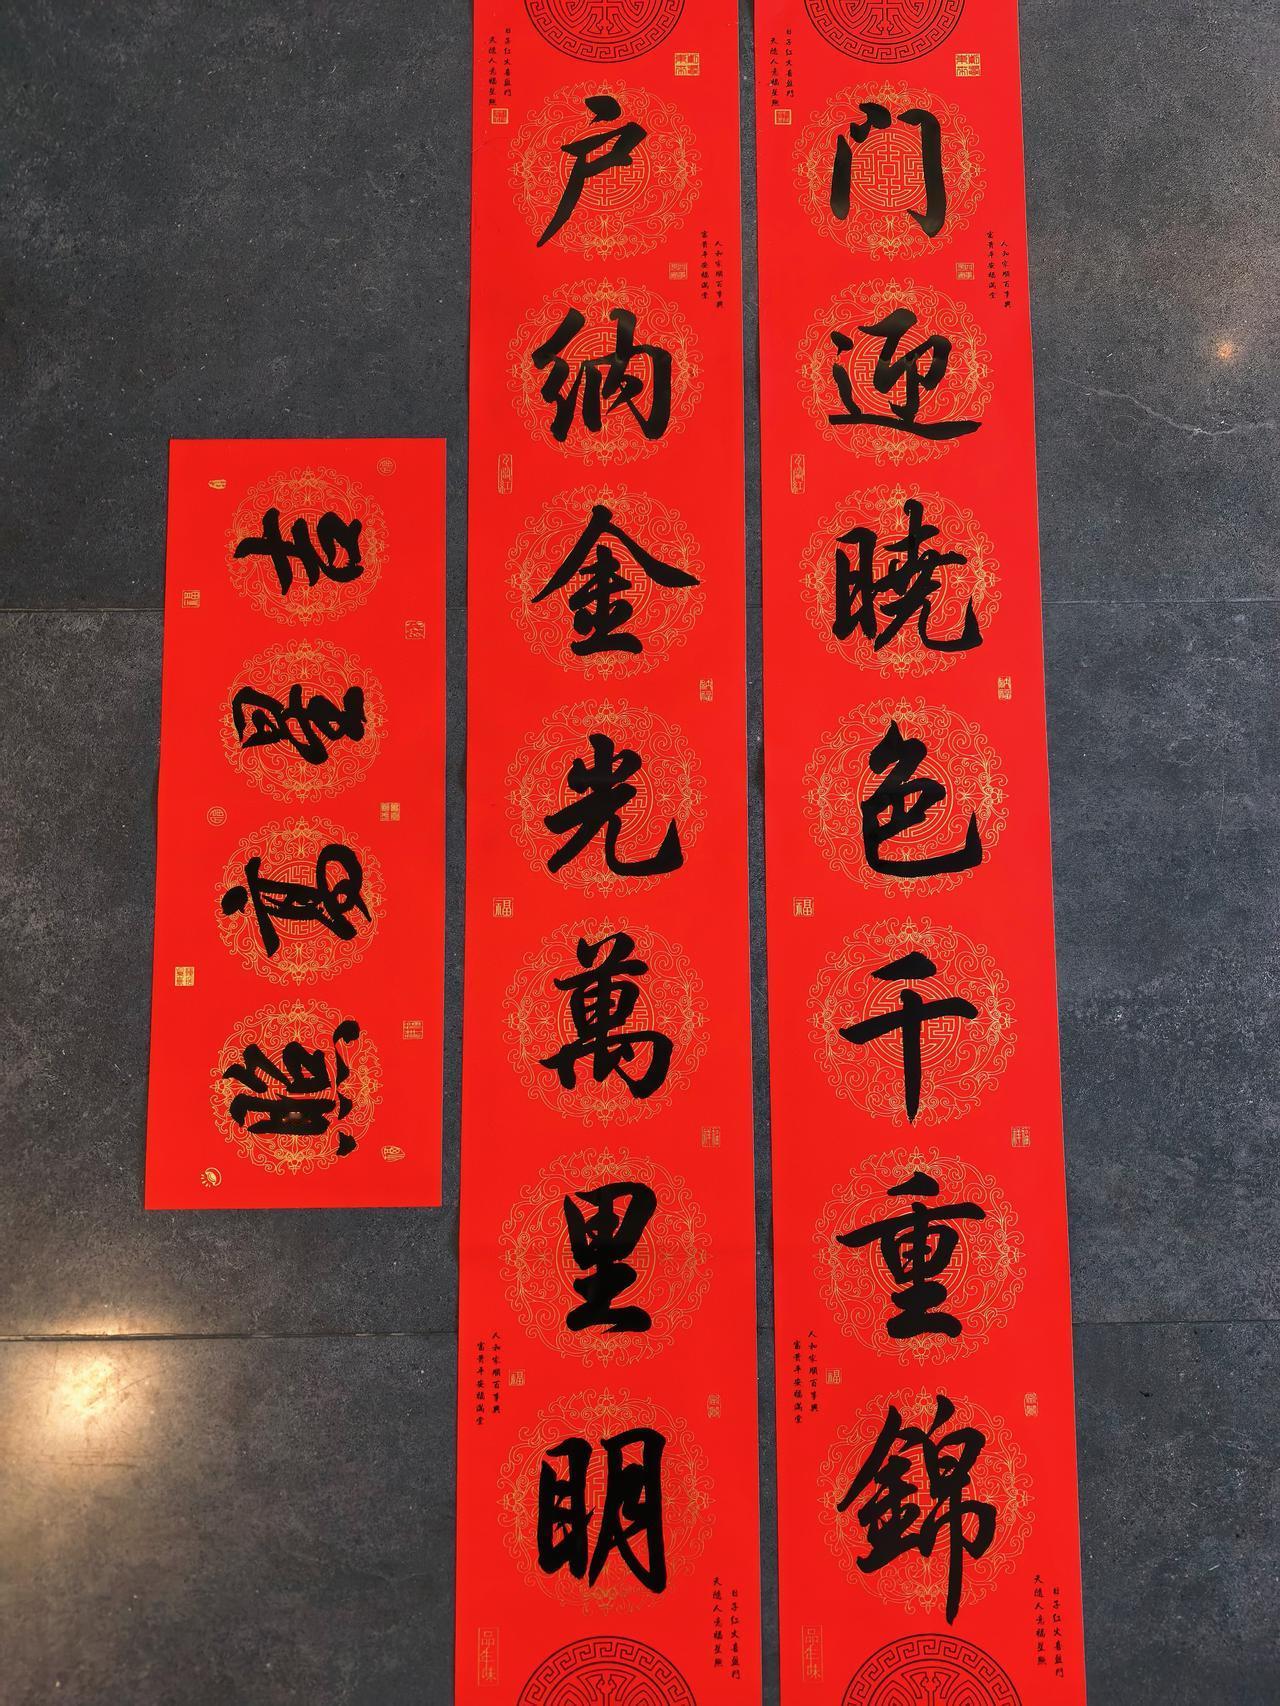 门迎晓色千重錦
户纳金光萬里明
吉星高照
日子红火喜盈门
天随人意福星照
人和家顺百事興
富貴平安福满堂
人和家顺百事興
富貴平安福满堂
日子红火喜盈门
天随人意福星照
日子红火喜盈门
天随人意福星照
人和家顺百事興
富貴平安福满堂
人和家顺百事興
富貴平安福满堂
日子红火喜盈门
天随人意福星照
福
福
福
福
品年味
品年味